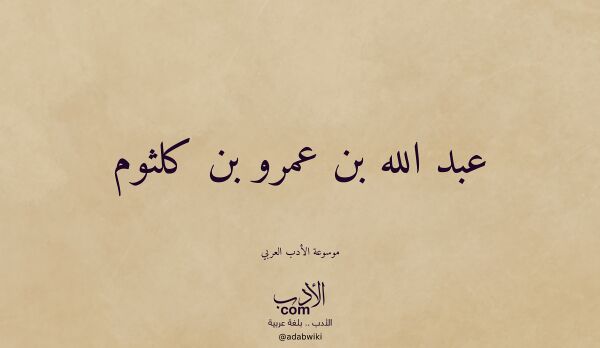 عبد الله بن عمرو بن كلثوم
موسوعة الأدب العربي
الأدب
com
الأدب .. بلغة عربية
@adabwiki